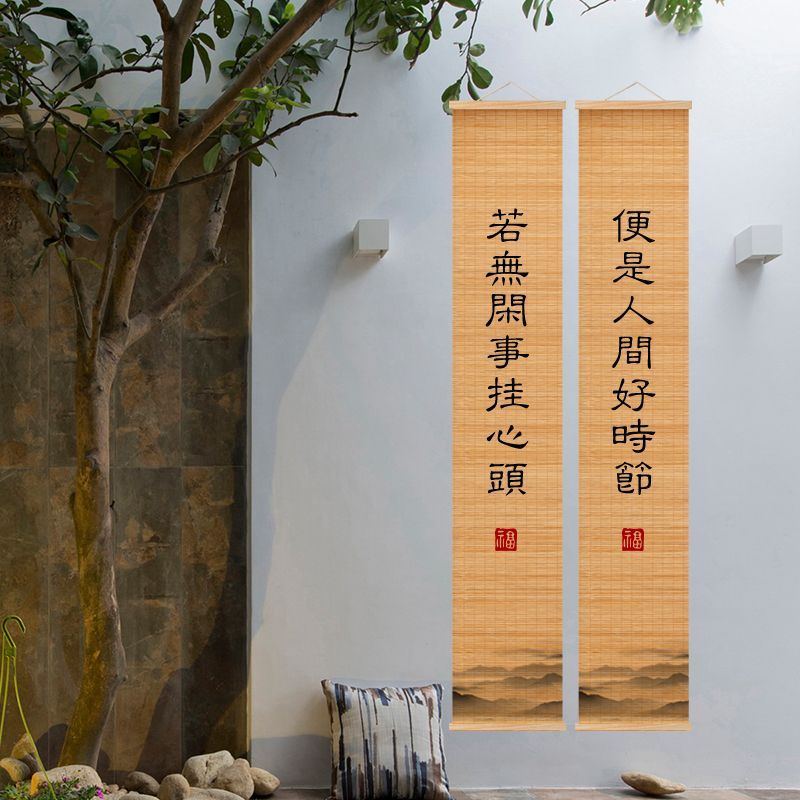 若無閑事挂心頭
福
便是人間好時節
福